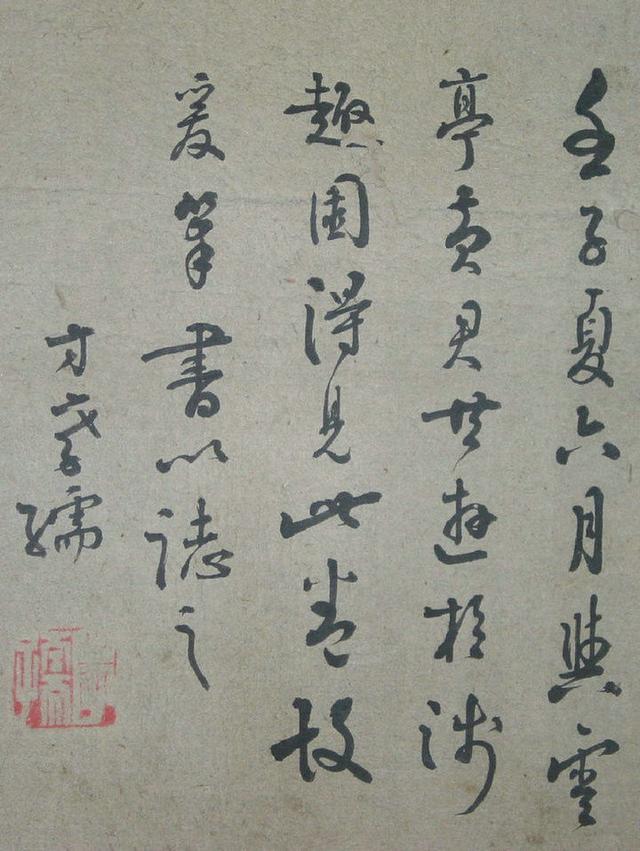 壬子夏六月與雲
亭黄君共遊於涉
趣園得見此卷故
爰筆書以誌之
方孝孺